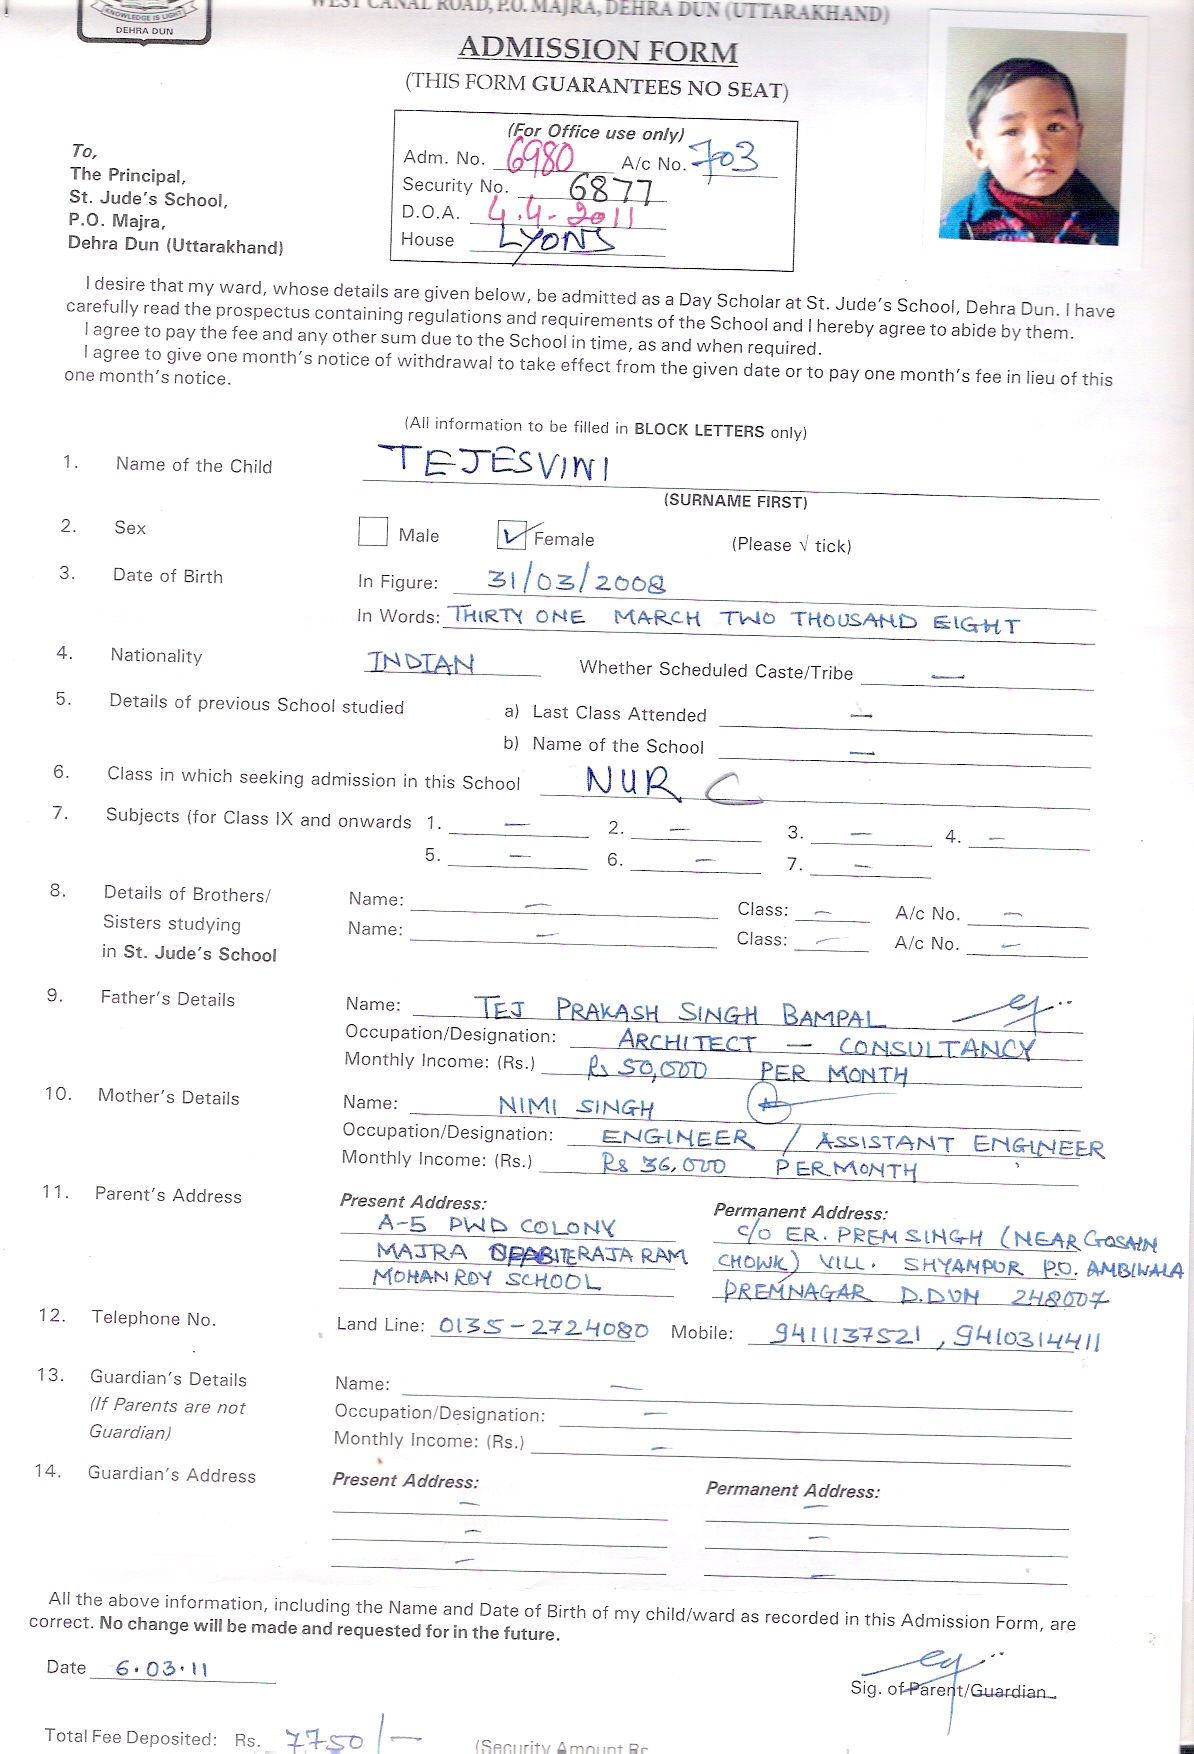 KNOWLEDGE IS LIGHT
DEHRA DUN
WEST CANAL ROAD, P.O. MAJRA, DEHRA DUN (UTTARAKHAND)
ADMISSION FORM
(THIS FORM GUARANTEES NO SEAT)
(For Office use only)
Adm. No. 6980 A/c No. 703
Security No. 6877
D.O.A. 4.4-2011
House LYONS
To,
The Principal,
St. Jude's School,
P.O. Majra,
Dehra Dun (Uttarakhand)
I desire that my ward, whose details are given below, be admitted as a Day Scholar at St. Jude's School, Dehra Dun. I have
carefully read the prospectus containing regulations and requirements of the School and I hereby agree to abide by them.
I agree to pay the fee and any other sum due to the School in time, as and when required.
I agree to give one month's notice of withdrawal to take effect from the given date or to pay one month's fee in lieu of this
one month's notice.
(All information to be filled in BLOCK LETTERS only)
1. Name of the Child TEJESVINI
(SURNAME FIRST)
2. Sex Male Female (Please √ tick)
3. Date of Birth In Figure: 31/03/2008
In Words: THIRTY ONE MARCH TWO THOUSAND EIGHT
4. Nationality INDIAN Whether Scheduled Caste/Tribe —
5. Details of previous School studied a) Last Class Attended —
b) Name of the School —
6. Class in which seeking admission in this School NUR C
7. Subjects (for Class IX and onwards 1. — 2. — 3. — 4. —
5. — 6. — 7. —
8. Details of Brothers/ Name: — Class: — A/c No. —
Sisters studying Name: — Class: — A/c No. —
in St. Jude's School
9. Father's Details Name: TEJ PRAKASH SINGH BAMPAL
Occupation/Designation: ARCHITECT — CONSULTANCY
Monthly Income: (Rs.) Rs 50,000 PER MONTH
10. Mother's Details Name: NIMI SINGH
Occupation/Designation: ENGINEER / ASSISTANT ENGINEER
Monthly Income: (Rs.) Rs 36,000 PER MONTH
11. Parent's Address Present Address: Permanent Address:
A-5 PWD COLONY C/O ER. PREM SINGH (NEAR GOSAIN
MAJRA RAJA RAM CHOWK) VILL. SHYAMPUR P.O. AMBIWALA
MOHAN ROY SCHOOL PREMNAGAR D.DUN 248007
12. Telephone No. Land Line: 0135-2724080 Mobile: 9411137521, 9410314411
13. Guardian's Details Name: —
(If Parents are not Occupation/Designation: —
Guardian) Monthly Income: (Rs.) —
14. Guardian's Address Present Address: — Permanent Address: —
— —
— —
All the above information, including the Name and Date of Birth of my child/ward as recorded in this Admission Form, are
correct. No change will be made and requested for in the future.
Date 6.03.11
Sig. of Parent/Guardian
Total Fee Deposited: Rs. 7750/— (Security Amount Rs